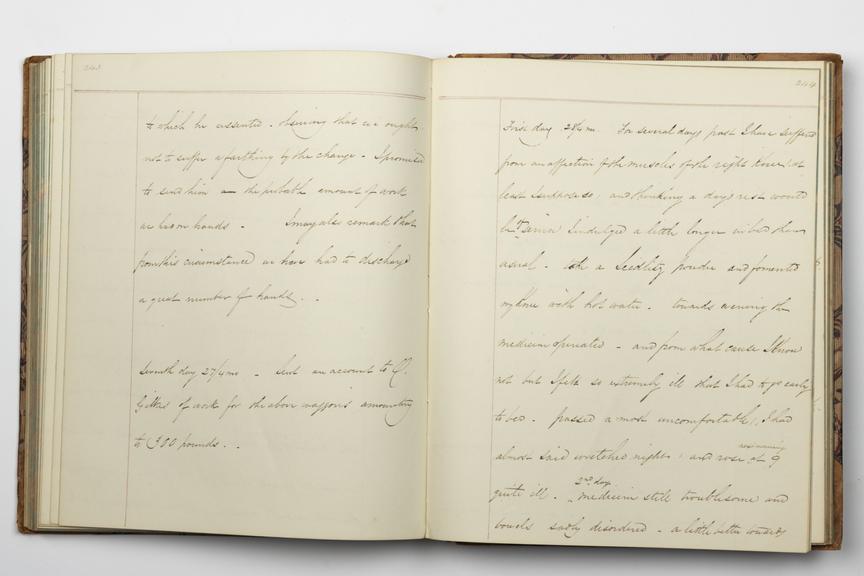 243
to which he assented. Observing that we ought
not to suffer a farthing by the change - I promised
to send him the probable amount of work
we has on hands - I may also remark that
from this circumstance we have had to discharge
a great number of hands. .
Seventh day 27/4 mo - Sent an account to
of work for the above waggons amounting
to 300 pounds. .
244
First day 28/4 m. For several days past I have suffered
from an affection of the muscles of the right Knee (at
least I suppose so) and thinking a days rest would
be of service I indulged a little longer in bed than
usual - took a Seedlitz Powder and fomented
my knee with hot water - towards evening the
medicine operated - and from what cause I know
not but I felt so extremely ill that I had to go early
to bed - passed a most uncomfortable, I had
almost said wretched night, and rose next morning at 9
quite ill. 2nd day medicine still troublesome and
bowels sadly disordered - a little better towards